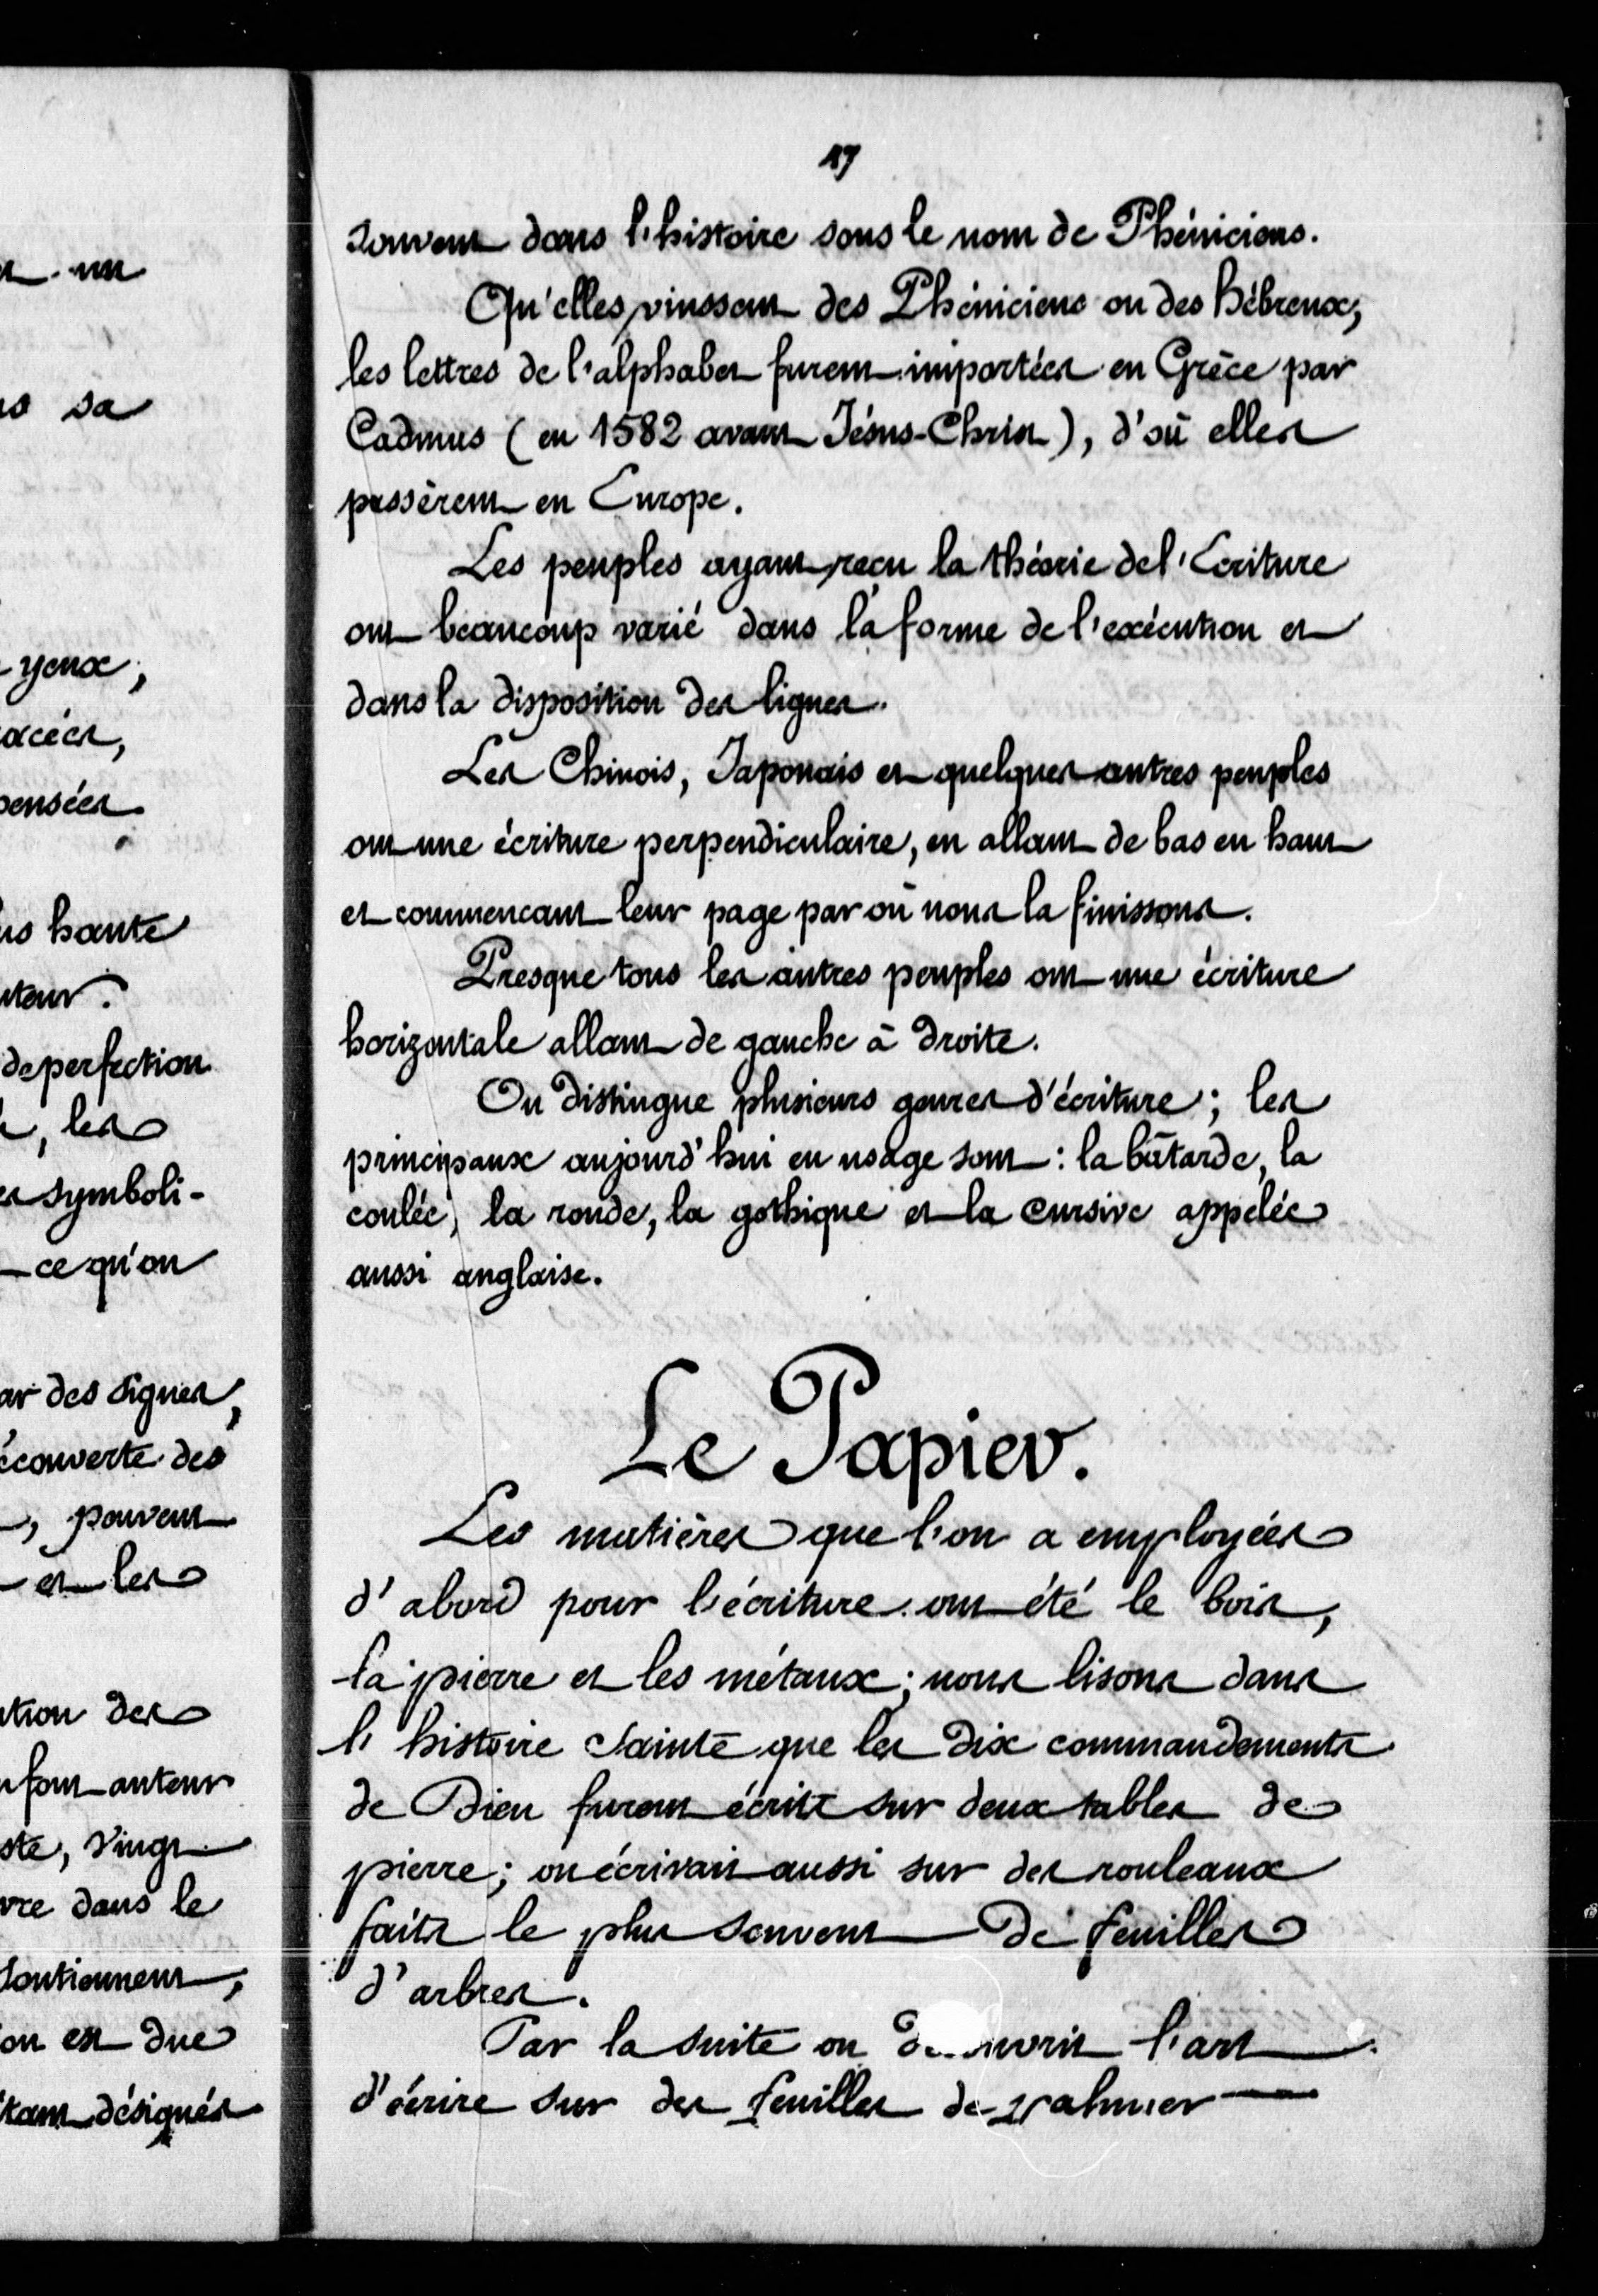 t un
s sa
yeux,
acées,
pensées.
us haute
uteur.
de perfection
, les
es symboli-
ce qu'on
ar des signes,
écouverte des
, peuvent
et les
ution des
font auteur
ste, vingt
vre dans le
soutiennent,
on est due
étant désignés
17
souvent dans l'histoire sous le nom de Phéniciens.
Qu'elles vinssent des Phéniciens ou des Hébreux,
les lettres de l'alphabet furent importées en Grèce par
Cadmus (en 1582 avant Jésus-Christ), d'où elles
passèrent en Europe.
Les peuples ayant reçu la théorie de l'Ecriture
ont beaucoup varié dans la forme de l'exécution et
dans la disposition des lignes.
Les Chinois, Japonais et quelques autres peuples
ont une écriture perpendiculaire, en allant de bas en haut
et commencant leur page par où nous la finissons.
Presque tous les autres peuples ont une écriture
horizontale allant de gauche à droite.
On distingue plusieurs genres d'écriture; les
principaux aujourd'hui en usage sont: la bâtarde, la
coulée, la ronde, la gothique et la cursive appelée
aussi anglaise.
Le Papier.
Les matières que l'on a employées
d'abord pour l'écriture ont été le bois,
la pierre et les métaux; nous lisons dans
l'histoire Sainte que les dix commandements
de Dieu furent écrits sur deux tables de
pierre; on écrivait aussi sur des rouleaux
faits le plus souvent de feuilles
d'arbres.
Par la suite on découvrit l'art
d'écrire sur des feuilles de palmier